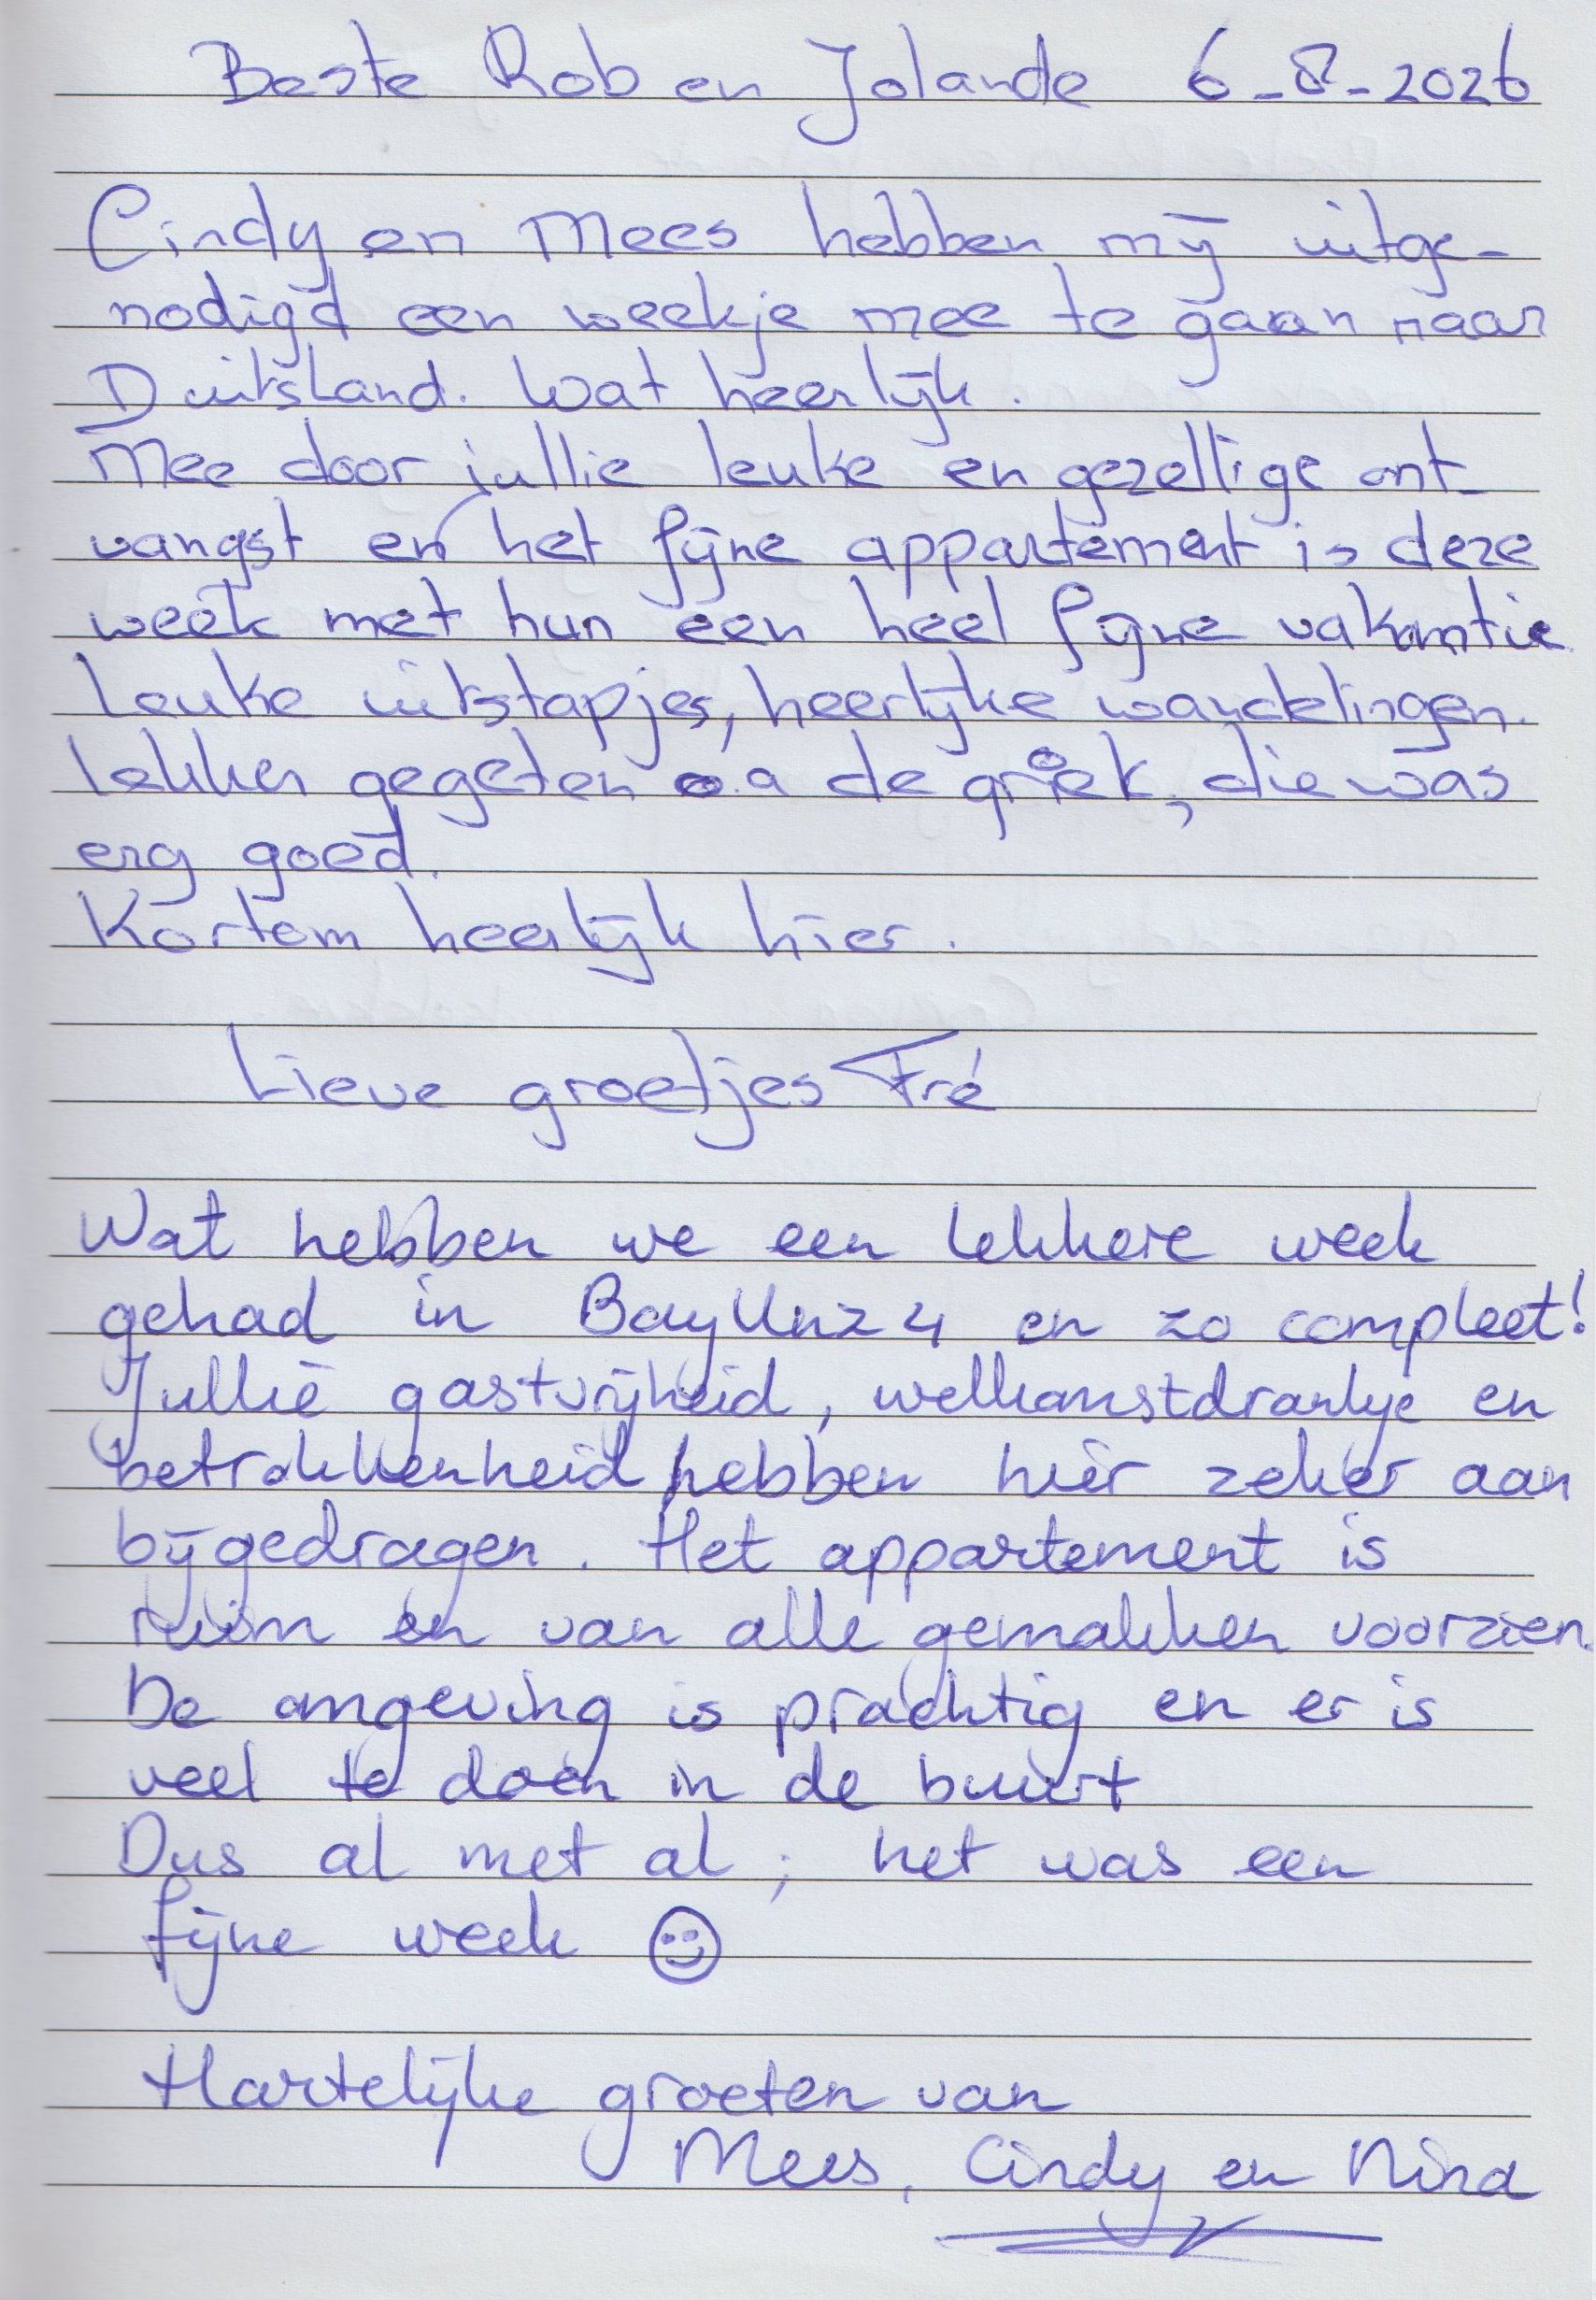 Beste Rob en Jolande 6-8-2026
Cindy en Mees hebben mij uitge-
nodigd een weekje mee te gaan naar
Duitsland. Wat heerlijk.
Mee door jullie leuke en gezellige ont-
vangst en het fijne appartement is deze
week met hun een heel fijne vakantie
Leuke uitstapjes, heerlijke wandelingen.
lekker gegeten o.a de griek, die was
erg goed.
Kortom heerlijk hier.
Lieve groetjes Fré
Wat hebben we een lekkere week
gehad in BayUnz 4 en zo compleet!
Jullie gastvrijheid, welkomstdrankje en
betrokkenheid hebben hier zeker aan
bijgedragen. Het appartement is
ruim en van alle gemakken voorzien.
De omgeving is prachtig en er is
veel te doen in de buurt
Dus al met al ; het was een
fijne week ☺
Hartelijke groeten van
Mees, Cindy en Nina